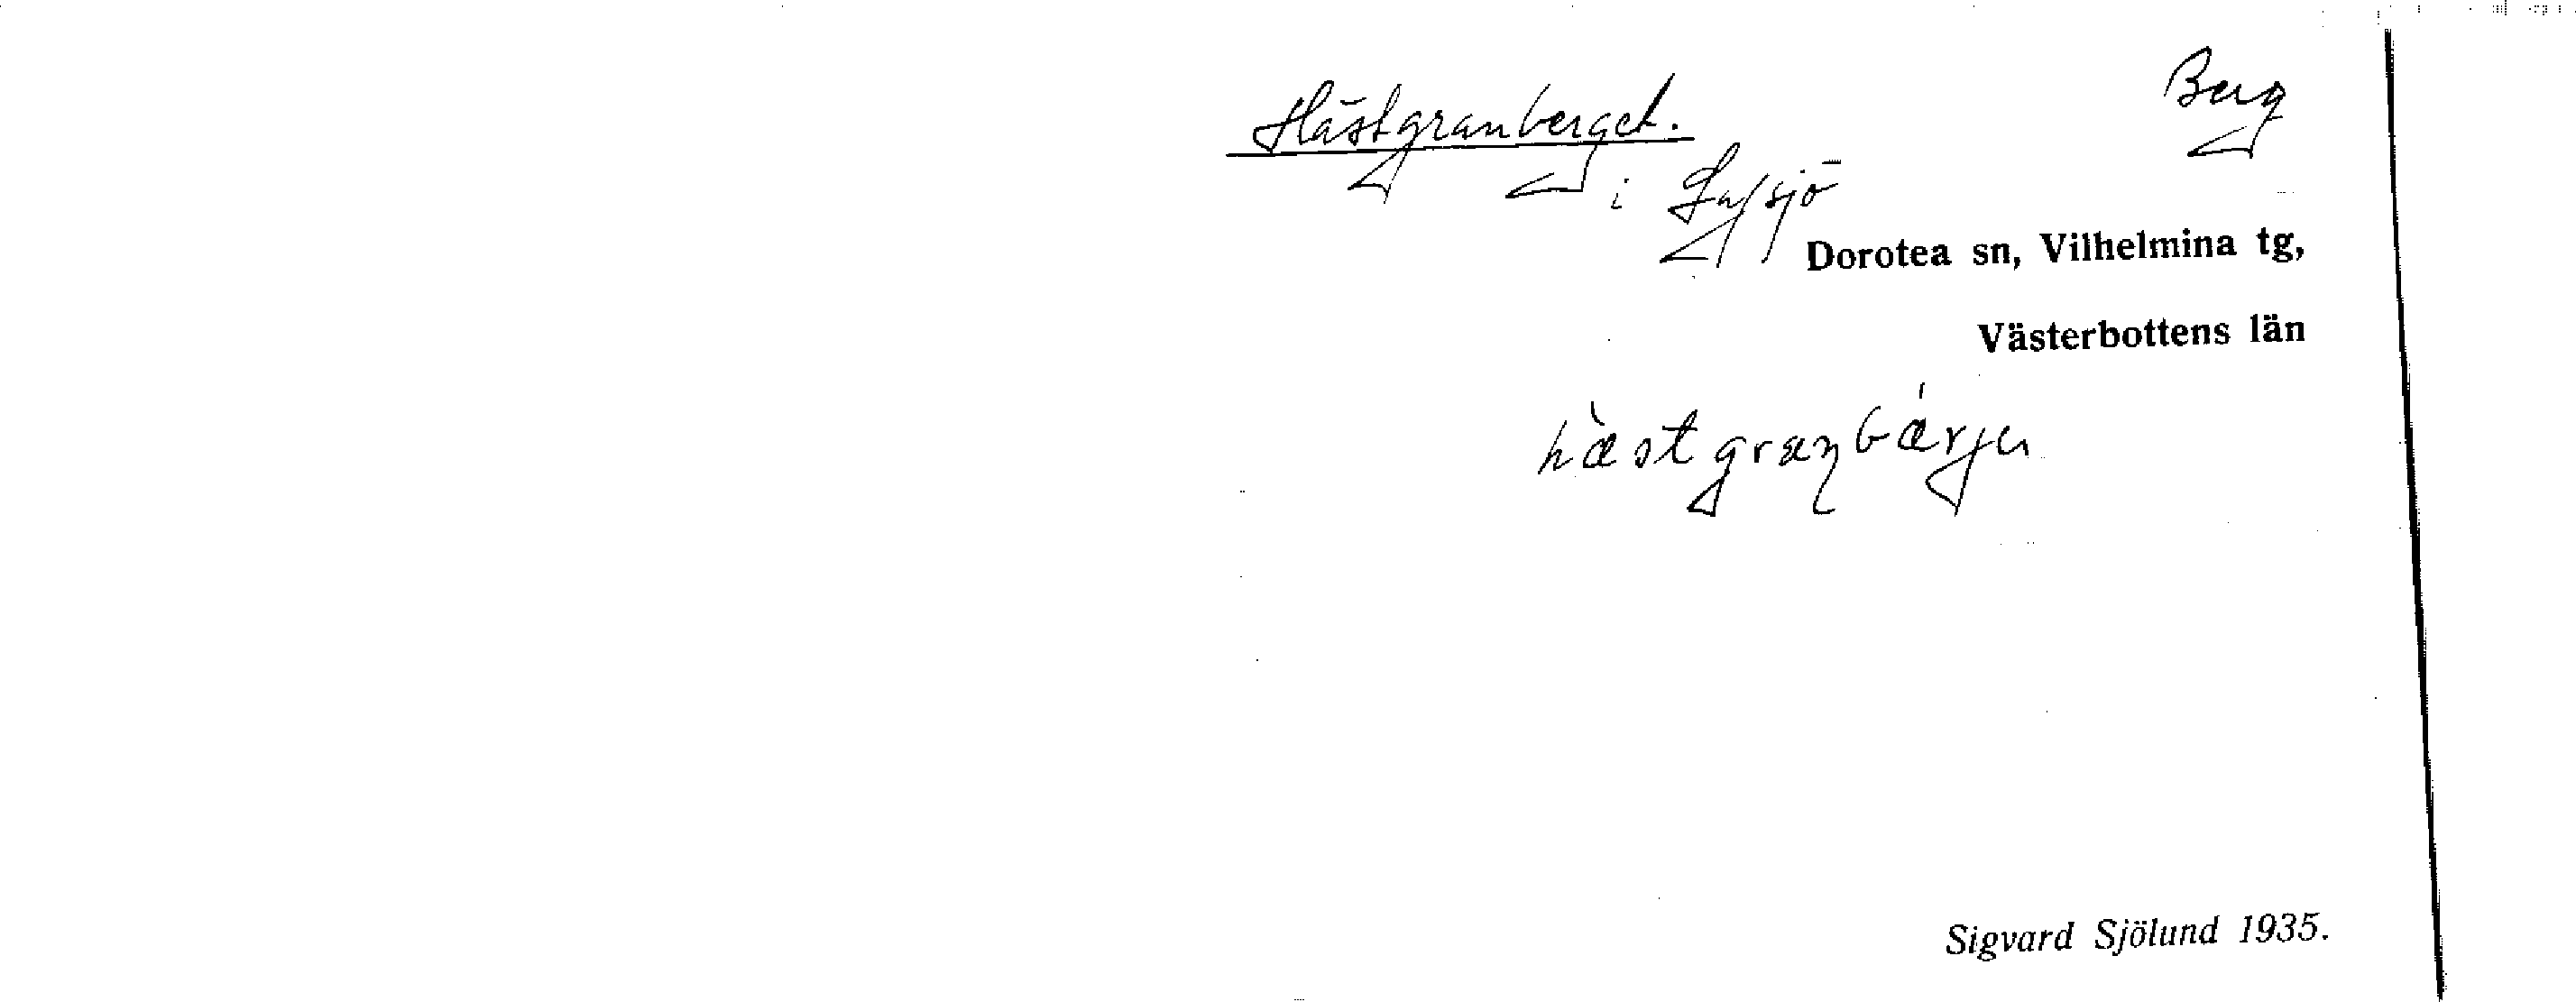 Hästgranberget. Berg
i Lajsjö
Dorotea sn, Vilhelmina tg,
Västerbottens län
hæ̀stgranbǽrjɐ
Sigvard Sjölund 1935.